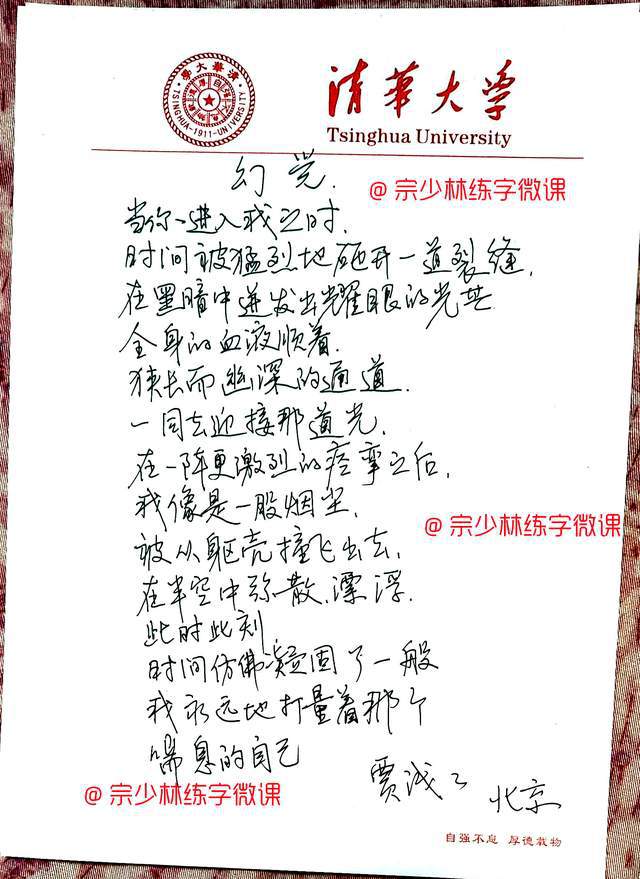 清華大学
Tsinghua University
清華大學
自强不息 厚德载物
TSINGHUA-1911-UNIVERSITY
幻觉.
@ 宗少林练字微课
当你一进入我之时,
时间被猛烈地砸开一道裂缝,
在黑暗中迸发出耀眼的光芒
全身的血液顺着
狭长而幽深的通道.
一同去迎接那道光,
在一阵更激烈的痉挛之后,
我像是一股烟尘,
@ 宗少林练字微课
被从躯壳撞飞出去,
在半空中弥散、漂浮.
此时此刻,
时间仿佛凝固了一般
我永远地打量着那个
喘息的自己
@ 宗少林练字微课
贾浅浅 北京
自强不息 厚德载物